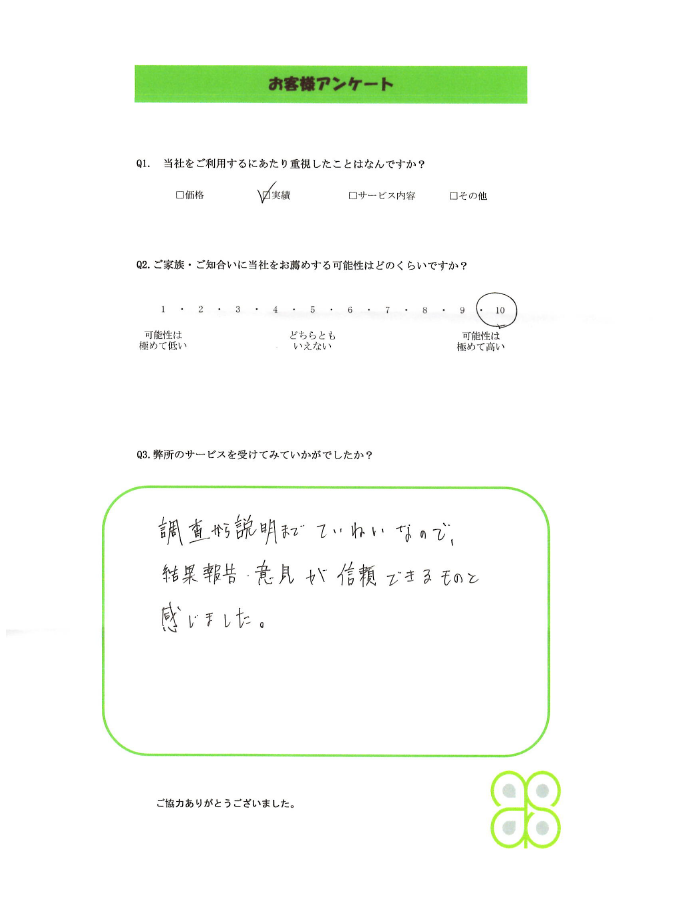 お客様アンケート
Q1. 当社をご利用するにあたり重視したことはなんですか？
□価格 ☑実績 □サービス内容 □その他
Q2.ご家族・ご知合いに当社をお薦めする可能性はどのくらいですか？
1 ・ 2 ・ 3 ・ 4 ・ 5 ・ 6 ・ 7 ・ 8 ・ 9 ・ 10
可能性は どちらとも 可能性は
極めて低い いえない 極めて高い
Q3.弊所のサービスを受けてみていかがでしたか？
調査から説明まで ていねいなので、
結果報告・意見が信頼できるものと
感じました。
ご協力ありがとうございました。